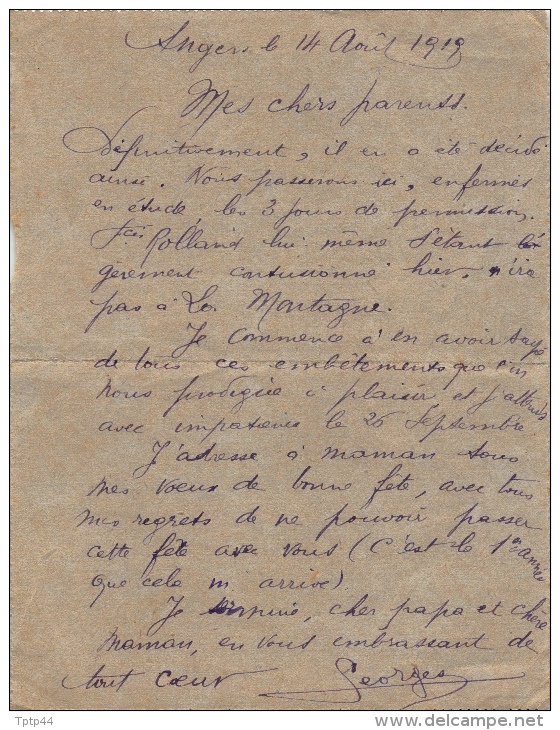 Angers le 14 Août 1919
Mes chers parents.
Définitivement, il en a été décidé
ainsi. Nous passerons ici, enfermés
en étude, les 3 jours de permission.
Rolland lui même s'étant lé-
gèrement contusionné hier, n'ira
pas à La Montagne.
Je commence à en avoir soupé
de tous ces embêtements que l'on
nous prodigue à plaisir et j'attends
avec impatience le 26 Septembre
J'adresse à maman tous
mes voeux de bonne fête, avec tous
mes regrets de ne pouvoir passer
cette fête avec vous (C'est la 1ère année
que cela m'arrive)
Je termine, cher papa et chère
maman, en vous embrassant de
tout coeur Georges
Tptp44
www.delcampe.net